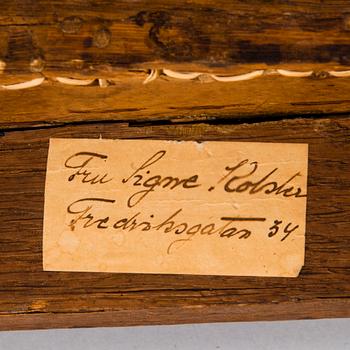 Fru Signe Kolster
Fredriksgatan 34